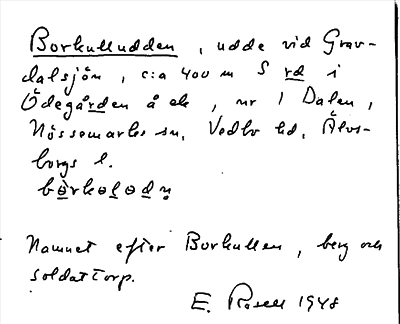 Borkulludden, udde vid Grav-
dalsjön, c:a 400 m S rd i
Ödegården å ek, nr 1 Dalen,
Nössemarks sn, Vedbo hd, Älvs-
borgs l.
Namnet efter Borkullen, berg och
soldattorp.
E. Rosell 1948